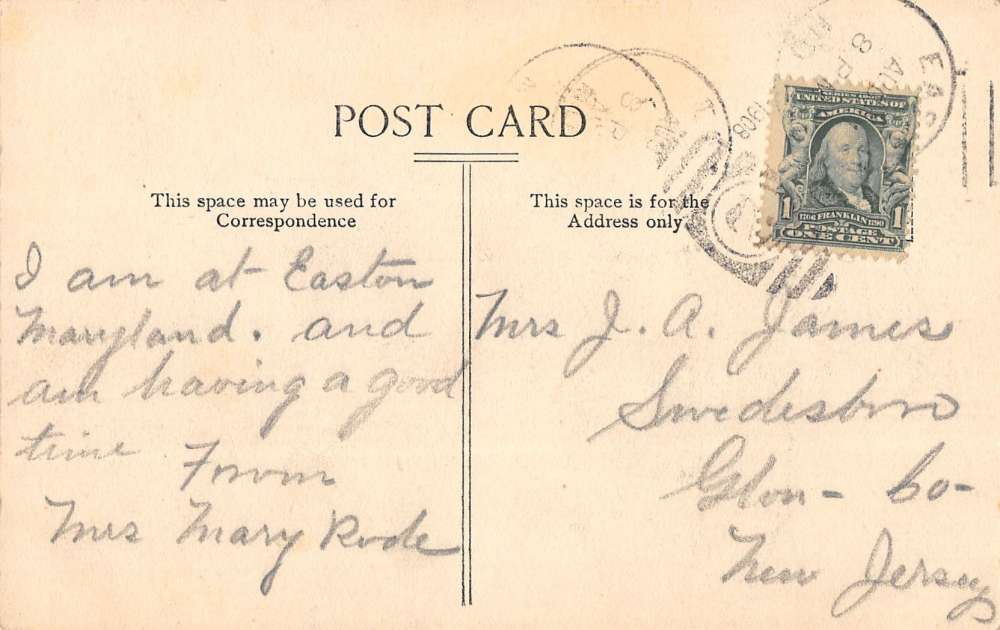 POST CARD
This space may be used for
Correspondence
This space is for the
Address only
I am at Easton
Maryland. and
am having a good
time From
Mrs Mary Rode
Mrs J. A. James
Swedesboro
Glou- Co-
New Jersey
SERIES 1902
UNITED STATES OF
AMERICA
1706 FRANKLIN 1790
1 1
POSTAGE
ONE CENT
EAS
AUG
8
P
1908